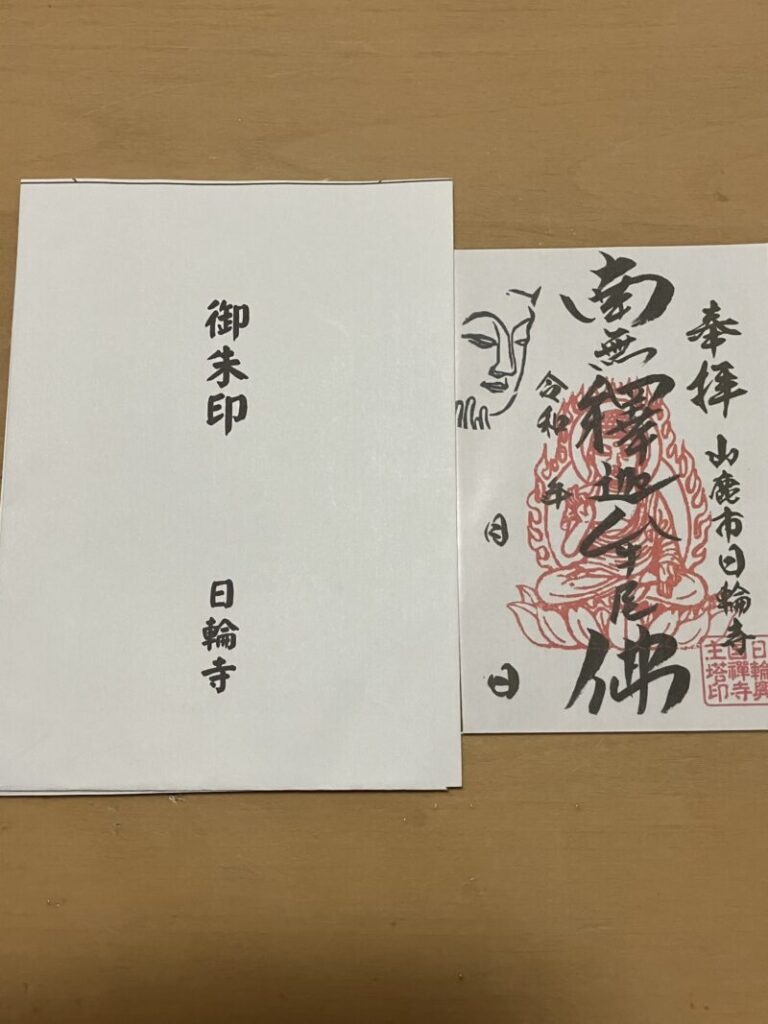 御朱印
日輪寺
奉拝
山鹿市日輪寺
南無釋迦牟尼佛
令和 年
月
日
日輪興
国禅寺
主塔印